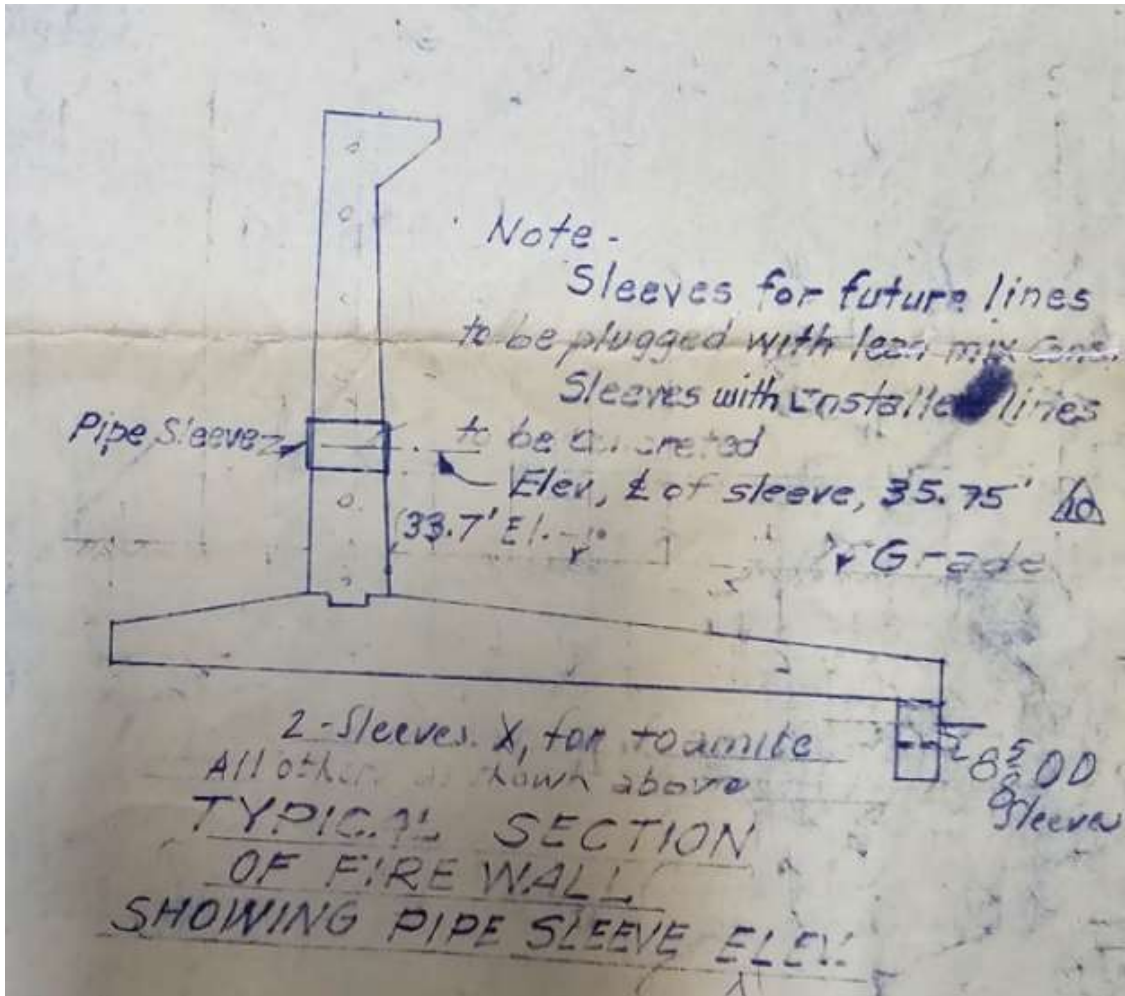 Note -
Sleeves for future lines
to be plugged with lean mix conc.
Sleeves with installed lines
Pipe Sleeve
to be concreted
Elev, ℄ of sleeve, 35.75' 10
33.7' El.
Grade
2-Sleeves X, for foamite
8 5/8 OD
All other as shown above
Sleeves
TYPICAL SECTION
OF FIRE WALL
SHOWING PIPE SLEEVE ELEV.